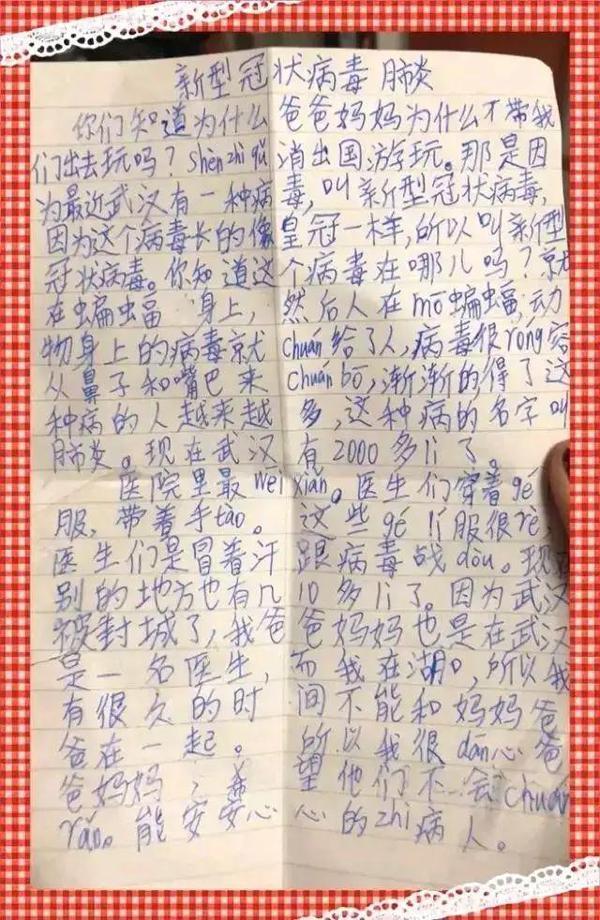 新型冠状病毒 肺炎
你们知道为什么爸爸妈妈为什么不带我
们出去玩吗？shèn zhì qǔ消出国游玩。那是因
为最近武汉有一种病毒，叫新型冠状病毒，
因为这个病毒长的像皇冠一样，所以叫新型
冠状病毒。你知道这个病毒在哪儿吗？就
在蝙蝠 身上，然后人在mō蝙蝠，动
物身上的病毒就chuán给了人，病毒很róng容
从鼻子和嘴巴来chuán bō，渐渐的得了这
种病的人越来越多，这种病的名字叫
肺炎。现在武汉有2000多lì了。
医院里最wēi xiǎn。医生们穿着gé
服，带着手tào。这些gé lí服很rè，
医生们是冒着汗跟病毒战dòu。现
别的地方也有几10多lì了。因为武汉
被封城了，我爸爸妈妈也是在武汉
是一名医生，而我在湖口，所以我
有很久的时间不能和妈妈爸
爸在一起。所以我很dān心爸
爸妈妈，希望他们不会chuán
rǎn。能安安心心的zhì病人。